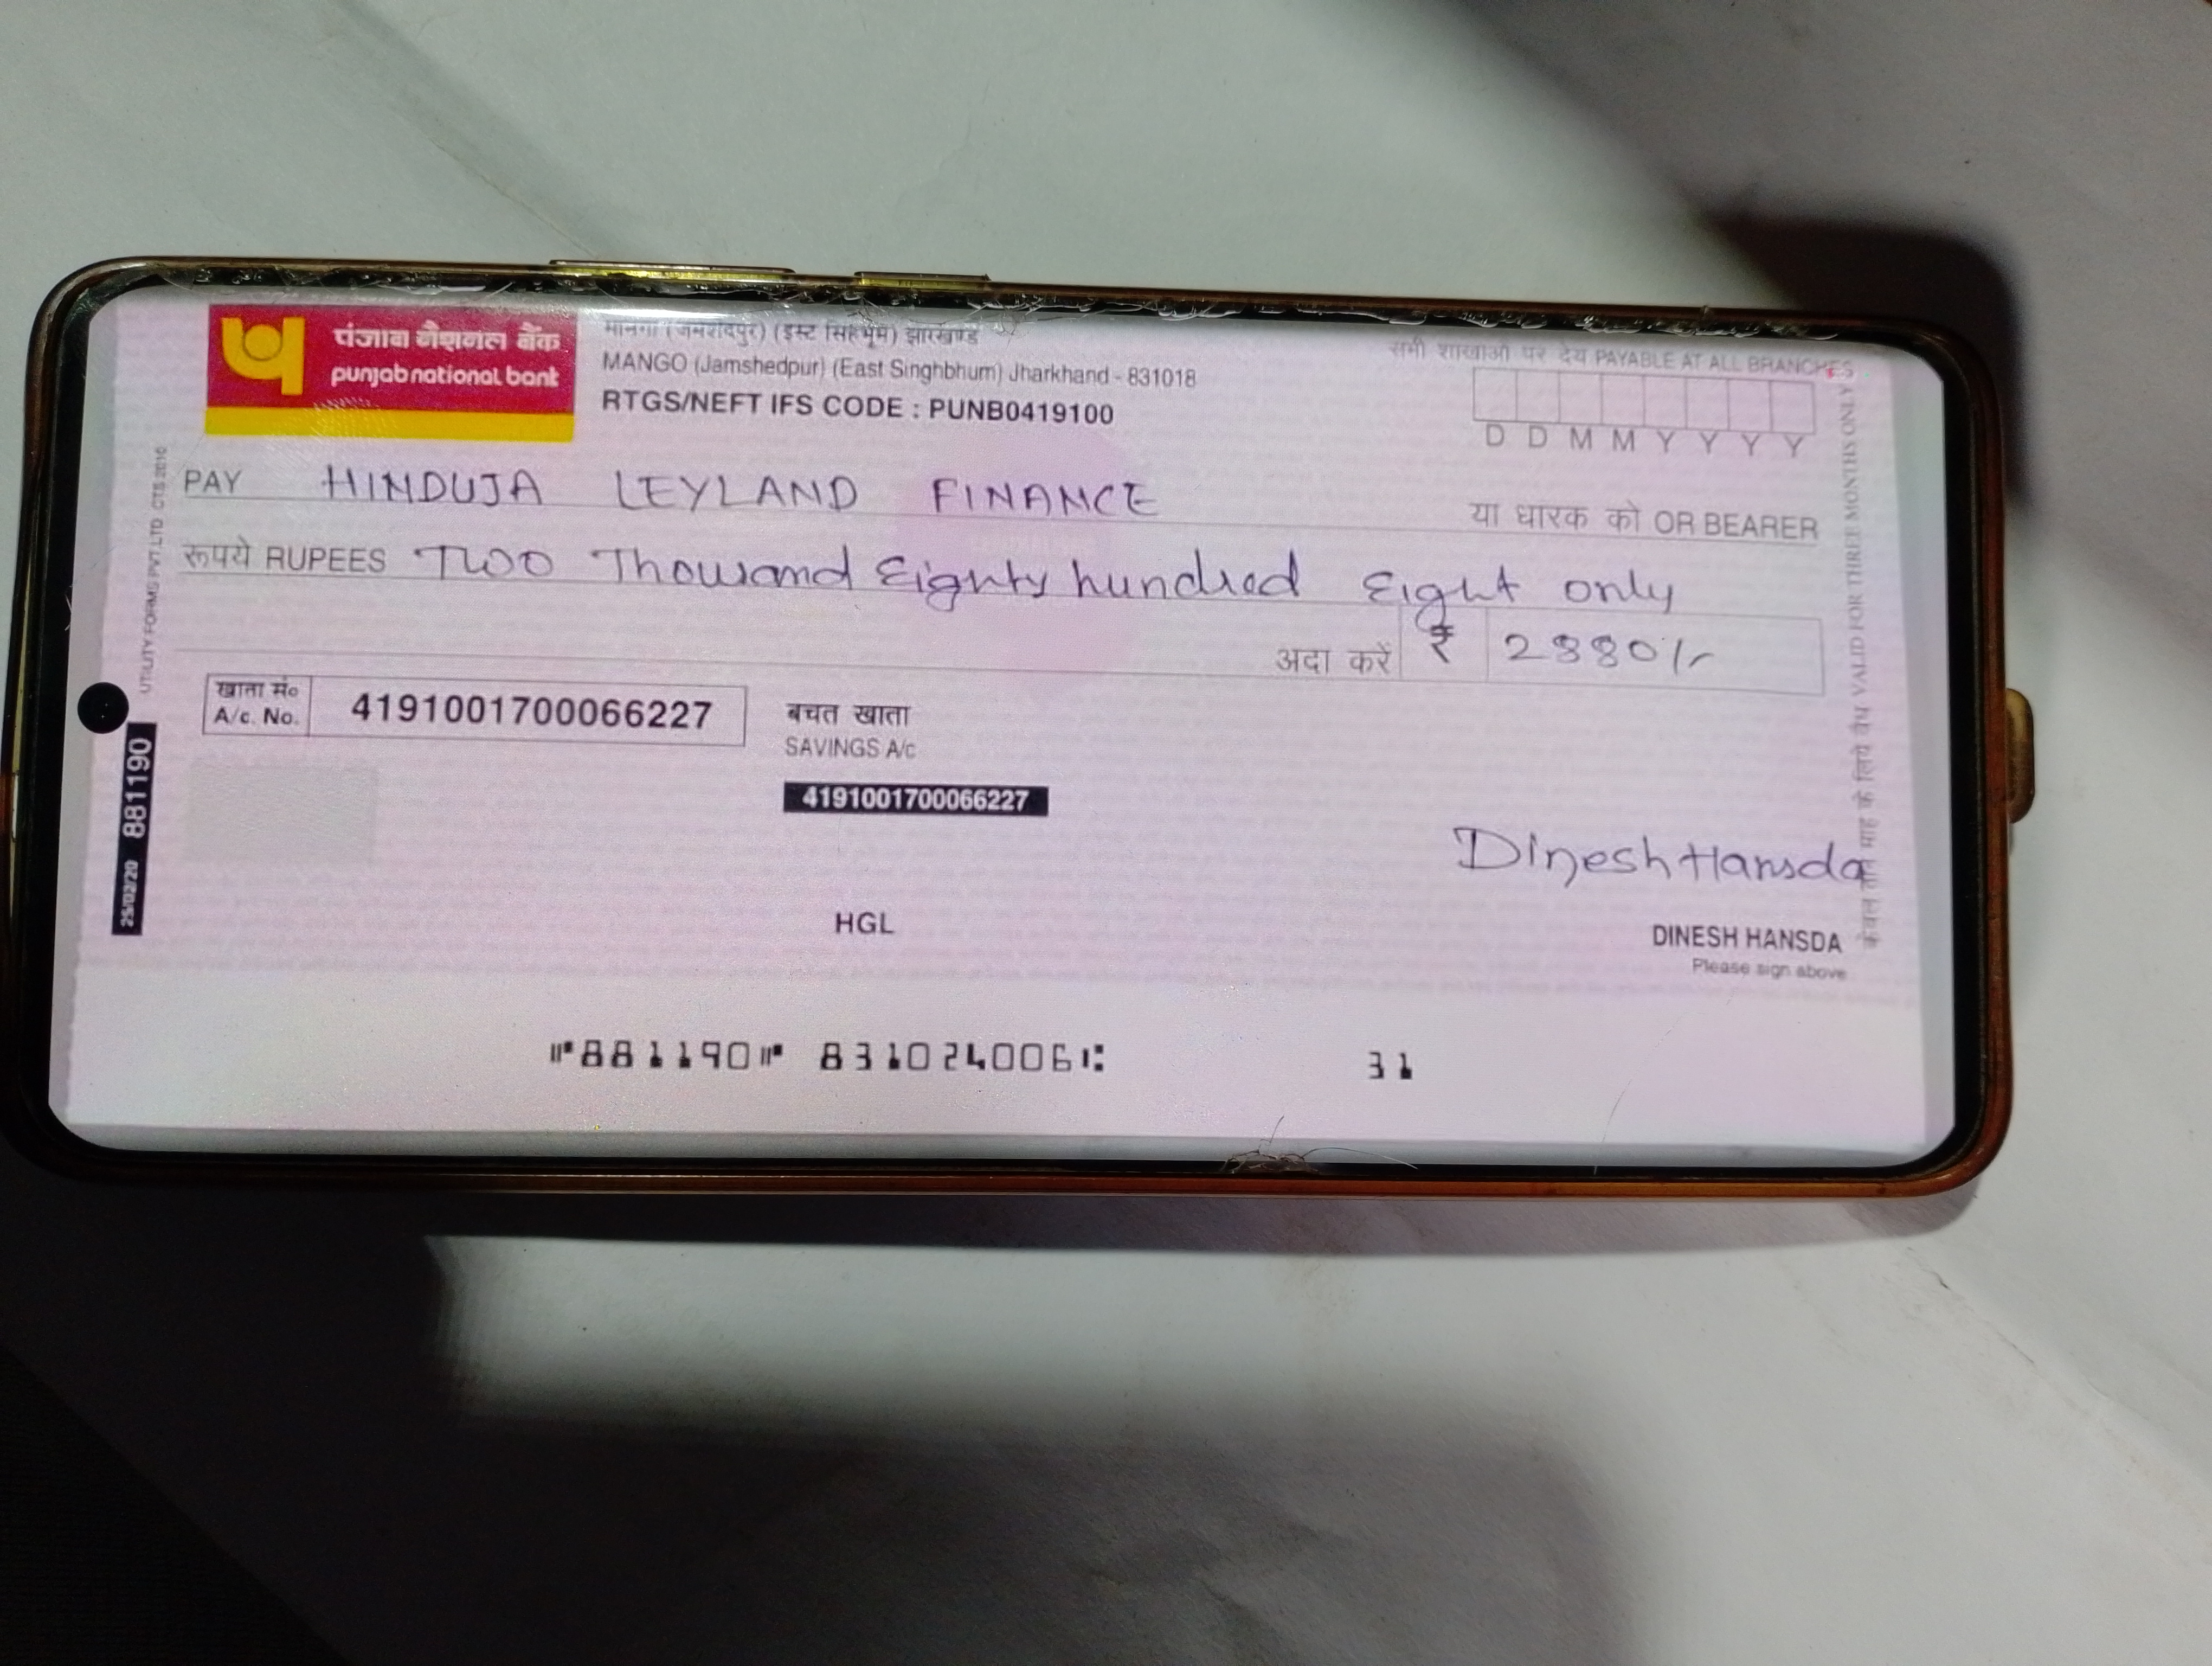 पंजाब नैशनल बैंक
punjab national bank
मानगो (जमशेदपुर) (ईस्ट सिंहभूम) झारखण्ड
MANGO (Jamshedpur) (East Singhbhum) Jharkhand - 831018
RTGS/NEFT IFS CODE : PUNB0419100
सभी शाखाओं पर देय PAYABLE AT ALL BRANCHES
D D M M Y Y Y Y
PAY HINDUJA LEYLAND FINANCE
या धारक को OR BEARER
रूपये RUPEES Two Thousand Eighty hundred Eight only
अदा करें ₹ 2880/-
खाता सं०
A/c. No. 4191001700066227
बचत खाता
SAVINGS A/c
4191001700066227
Dinesh Hansda
HGL
DINESH HANSDA
Please sign above
⑈881190⑈ 831024006⑆ 31
UTILITY FORMS PVT.LTD. CTS 2010
25/02/20 881190
केवल तीन माह के लिये वैध VALID FOR THREE MONTHS ONLY